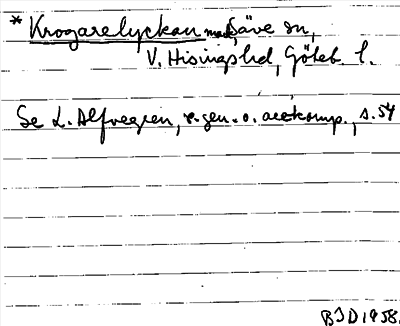 * Krogarelyckan mad, Säve sn,
V. Hisings hd, Göteb. l.
Se L. Alfvegren, r-gen. o. acckomp., s. 54
BJD 1958.